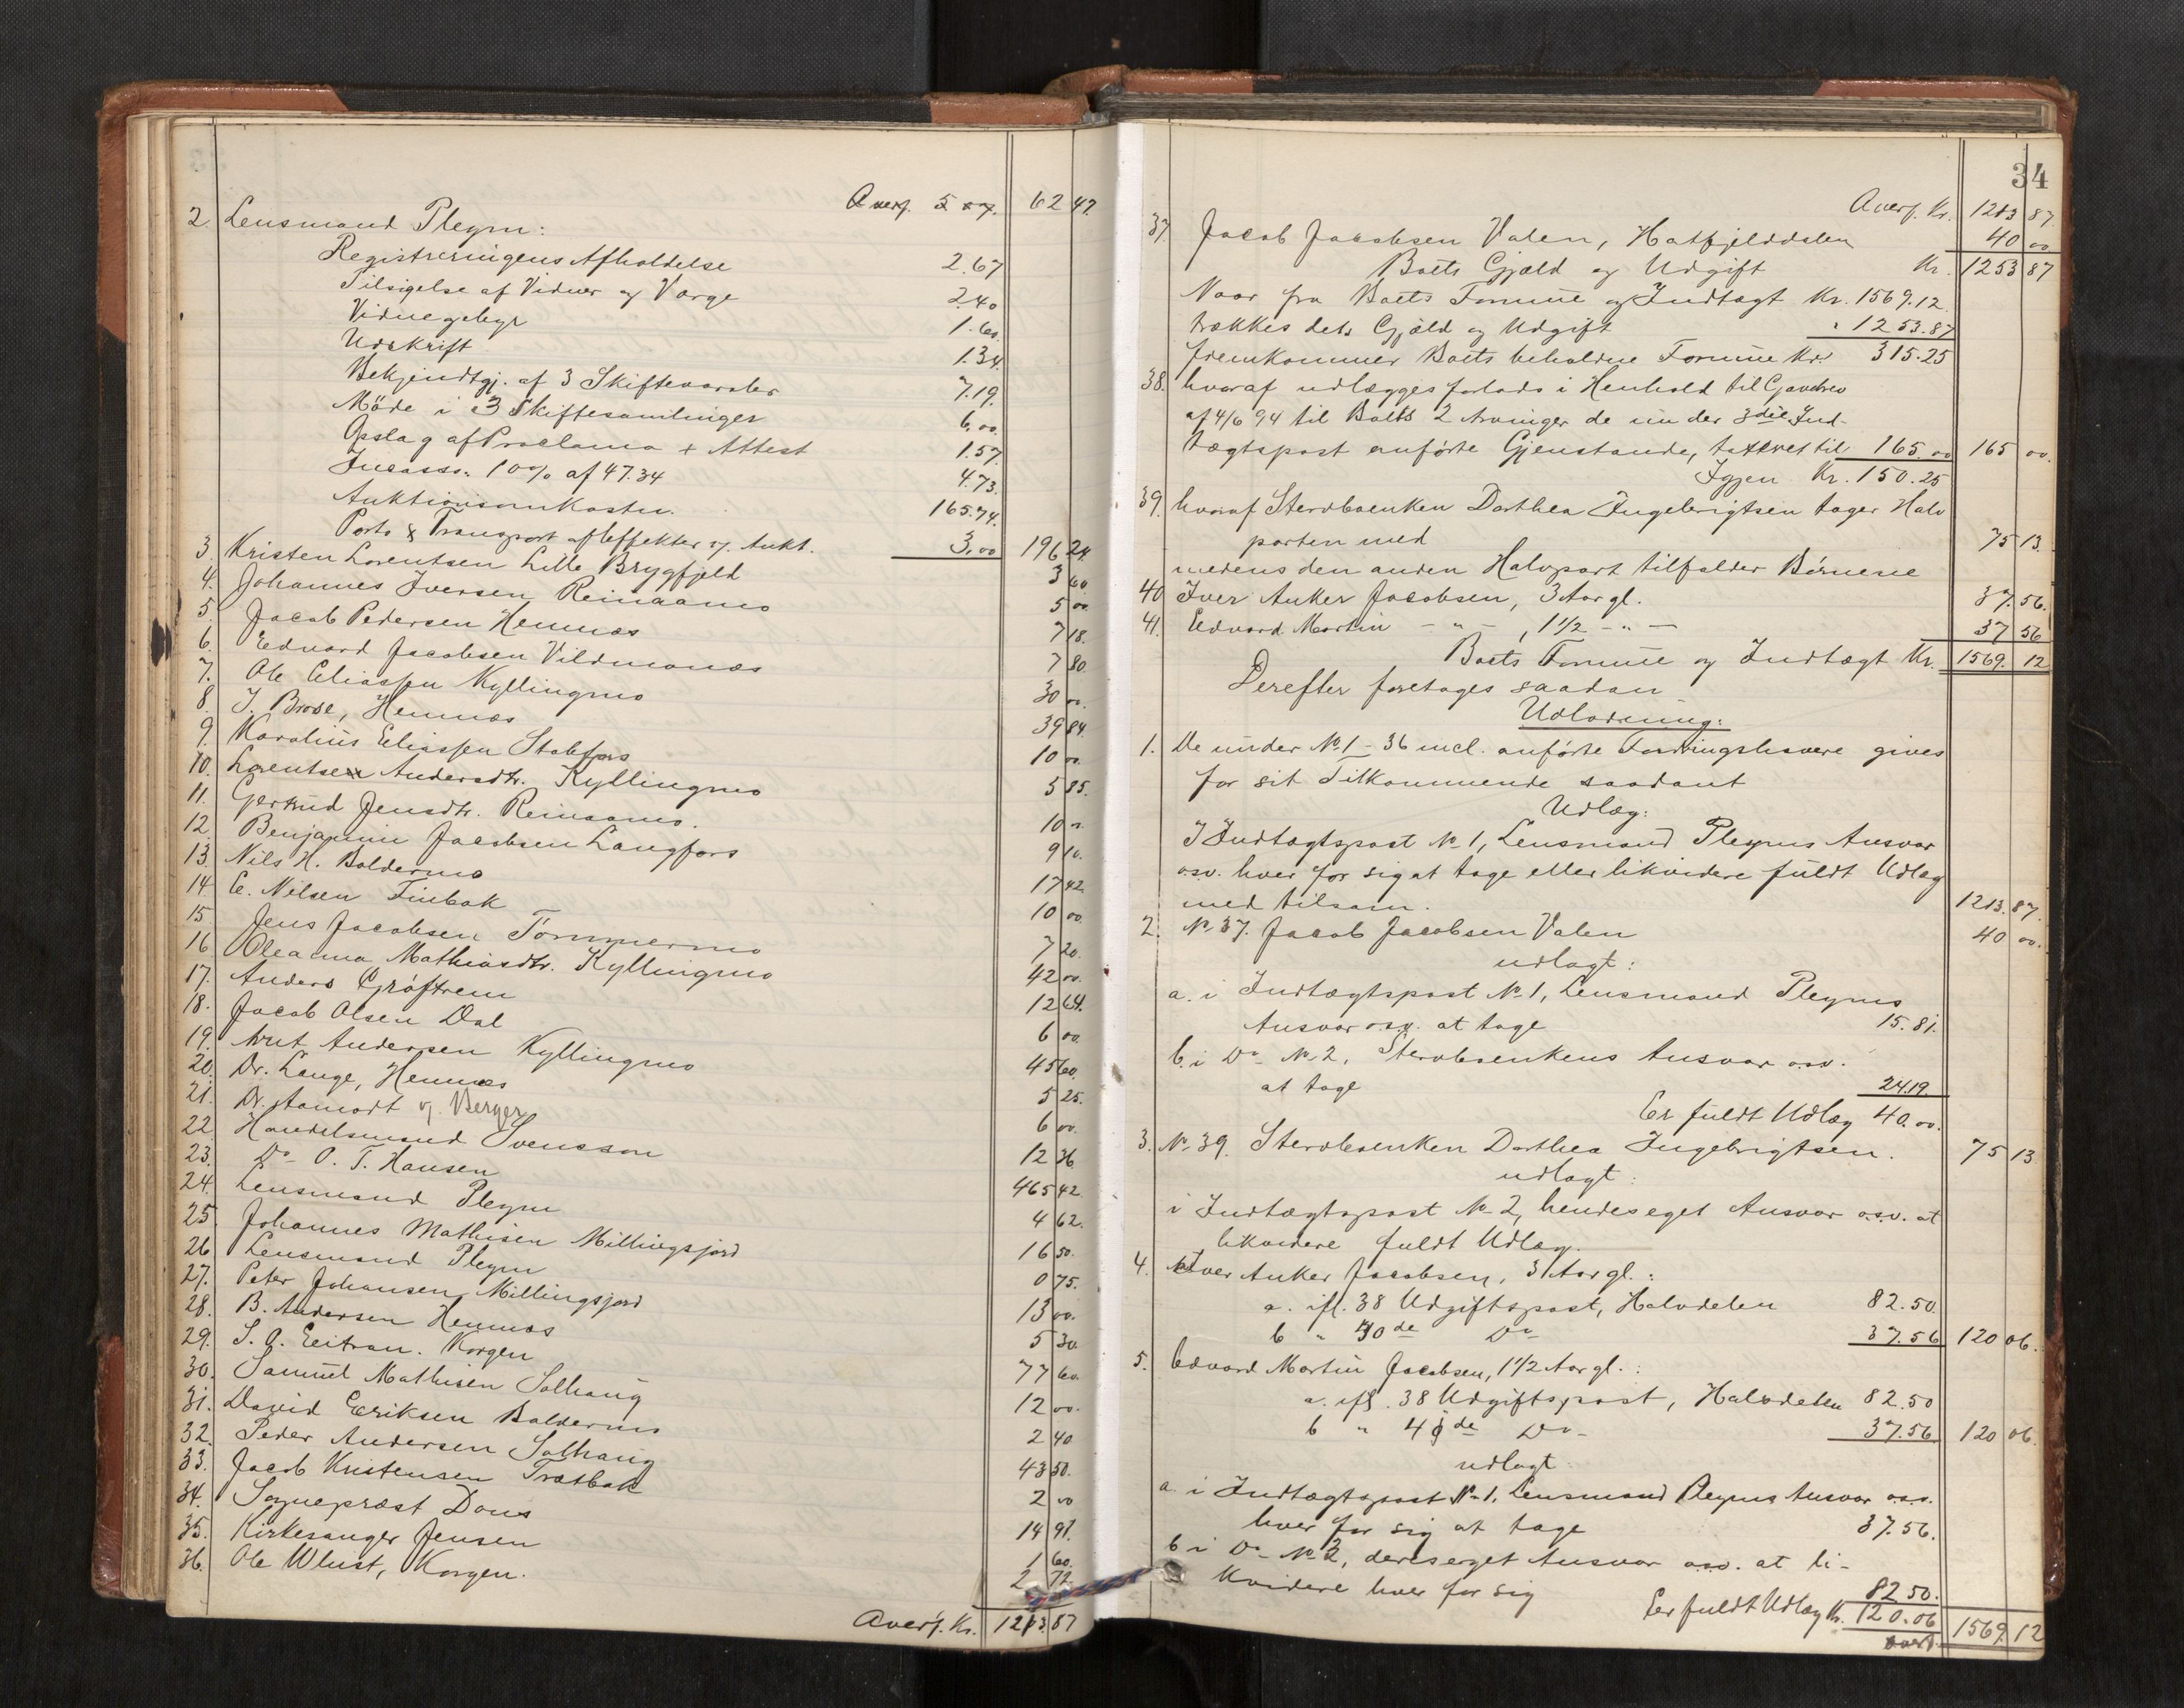 Overf. 62 47.
2. Lensmand Pleym:
Registreringens Afholdelse 2.67
Tilsigelse af Vidner og Værge 2.40
Vidnegebyr 1.60
Udskrift 1.34.
Bekjendtgj. af 3 Skiftevarsler 7.19.
Möde i 3 Skiftesamlinger 6.00.
Opslag af Proclama + Attest 1.57.
Incasso: 10% af 47.34 4.73.
Auktionsomkostn. 165.74.
Porto & Transport af Effekter v. Aukt. 3.00 196 24.
3. Kristen Lorentsen Lille Brygfjeld 3 60.
4. Johannes Iversen Reinaamo 5 00.
5. Jacob Pedersen Hemnæs 7 18.
6. Edvard Jacobsen Vildmonæs 7 80.
7. Ole Eliassen Kyllingmo 30 00.
8. J. Brose, Hemnæs 39 84.
9. Karolius Eliassen Stabfors 10 00.
10. Lorentse Andersdtr. Kyllingmo 5 85.
11. Gertrud Jensdtr. Reinaamo. 10 00.
12. Benjamin Jacobsen Langfors 9 10.
13. Nils H. Boldermo 17 42.
14. E. Nilsen Finbak 10 00.
15. Jens Jacobsen Tömmermo 7 20.
16. Oleanna Mathiasdtr. Kyllingmo 42 00.
17. Anders Gröftrem 12 64.
18. Jacob Olsen Dal 6 00.
19. Arnt Andersen Kyllingmo 45 60.
20. Dr. Lange, Hemnæs 5 25.
21. Dr. Aamodt v/ Berger 6 00.
22. Handelsmand Svensson 12 36.
23. Do O. T. Hansen 465 42.
24. Lensmand Pleym 4 62.
25. Johannes Mathisen Millingsjord 16 50.
26. Lensmand Pleym 0 75.
27. Peter Johansen Millingsjord 13 00.
28. B. Andersen Hemnæs 5 30.
29. S. A. Eeitran. Korgen 77 60.
30. Samuel Mathisen Solhaug 12 00.
31. David Eriksen Boldermo 2 40.
32. Peder Andersen Solhaug 43 50.
33. Jacob Kristensen Trætbak 2 00
34. Sognepræst Dons 14 91.
35. Kirkesanger Jensen 1 60.
36. Ole Wlust, Korgen. 2 72.
Overf. Kr. 1213.87
34
Overf. Kr. 1213 87.
37. Jacob Jacobsen Valen, Hatfjelddalen 40 00
Boets Gjæld og Udgift Kr. 1253 87
Naar fra Boets Formue og Indtægt Kr. 1569.12
trækkes dets Gjæld og Udgift " 1253.87
fremkommer Boets beholdne Formue Kr. 315.25
38. hvoraf udlægges forlods i Henhold til Gavebrev
af 4/6 94 til Boets 2 Arvinger de under 3die Ind-
tægtspost anførte Gjenstande, taxeret til 165.00 165 00.
Igjen Kr. 150.25
39. hvoraf Stervboenken Dorthea Ingebrigtsen tager Halv
parten med 75 13.
medens den anden Halvpart tilfalder Börnene
40 Iver Anker Jacobsen, 3 Aar gl. 37.56.
41. Edvard Martin - " - , 1 1/2 - " - 37 56
Boets Formue og Indtægt Kr. 1569.12
Derefter foretages saadan
Udlodning:
1. De under No 1 - 36 incl. anförte Fordringshavere gives
for sit Tilkommende saadant
Udlæg:
I Indtægtspost No 1, Lensmand Pleyms Ansvar
osv. hver for sig at tage eller likvidere fuldt Udlæg
med tilsam. 1213.87.
2. No 37. Jacob Jacobsen Valen 40 00.
udlagt:
a. i Indtægtspost No 1, Lensmand Pleyms
Ansvar osv. at tage 15.81.
b. i Do No 2, Stervboenkens Ansvar osv.
at tage 24.19.
Er fuldt Udlæg 40.00.
3. No 39. Stervboenken Dorthea Ingebrigtsen. 75 13
udlagt:
i Indtægtspost No 2, hendes eget Ansvar osv. at
likvidere fuldt Udlæg.
4. Iver Anker Jacobsen, 3 Aar gl.:
a. ifl. 38 Udgiftspost, Halvdelen 82.50.
b " 40de Do 37.56 120 06.
5. Edvard Martin Jacobsen, 1 1/2 Aar gl.:
a. ifl. 38 Udgiftspost, Halvdelen 82.50
b " 41de Do 37.56. 120 06.
udlagt
a i Indtægtspost No 1, Lensmand Pleyms Ansvar osv.
hver for sig at tage 37.56.
b i Do No 2, deres eget Ansvar osv. at li-
kvidere hver for sig 82.50.
Er fuldt Udlæg Kr. 120.06 1569.12